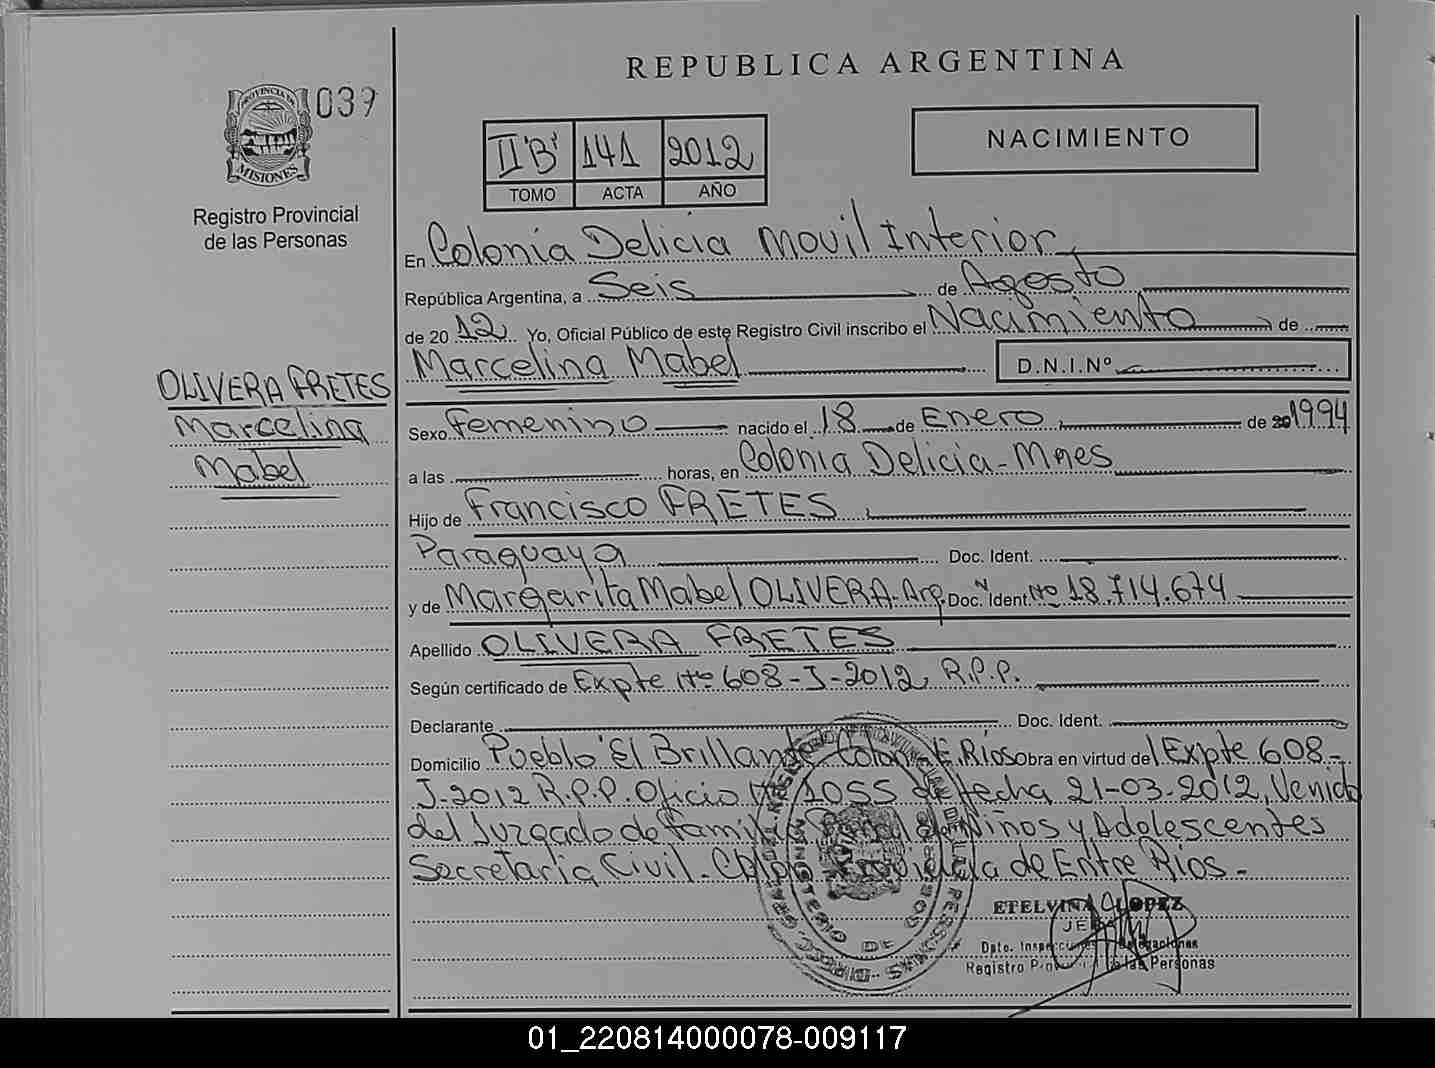 REPUBLICA ARGENTINA
039
PROVINCIA DE
MISIONES
Registro Provincial
de las Personas
II "B" 141 2012
TOMO ACTA AÑO
NACIMIENTO
En Colonia Delicia Movil Interior
República Argentina, a Seis de Agosto
de 20 12 Yo, Oficial Público de este Registro Civil inscribo el Nacimiento de
Marcelina Mabel D.N.I.Nº
OLIVERA FRETES
Marcelina
Mabel
Sexo Femenino nacido el 18 de Enero de 1994
a las horas, en Colonia Delicia - Mnes
Hijo de Francisco FRETES
Paraguaya Doc. Ident.
y de Margarita Mabel OLIVERA - Arg. Doc. Ident. Nº 18.714.674
Apellido OLIVERA FRETES
Según certificado de Expte Nº 608-J-2012, R.P.P.
Declarante Doc. Ident.
Domicilio Pueblo El Brillante E. Ríos Obra en virtud del Expte 608-
J-2012 R.P.P. Oficio Nº 1055 de fecha 21-03-2012, Venido
del Juzgado de Familia Niños y Adolescentes
Secretaria Civil - de Entre Ríos -
ETELVINA LOPEZ
JEFA
Dpto. Delegaciones
Registro de las Personas
01_220814000078-009117